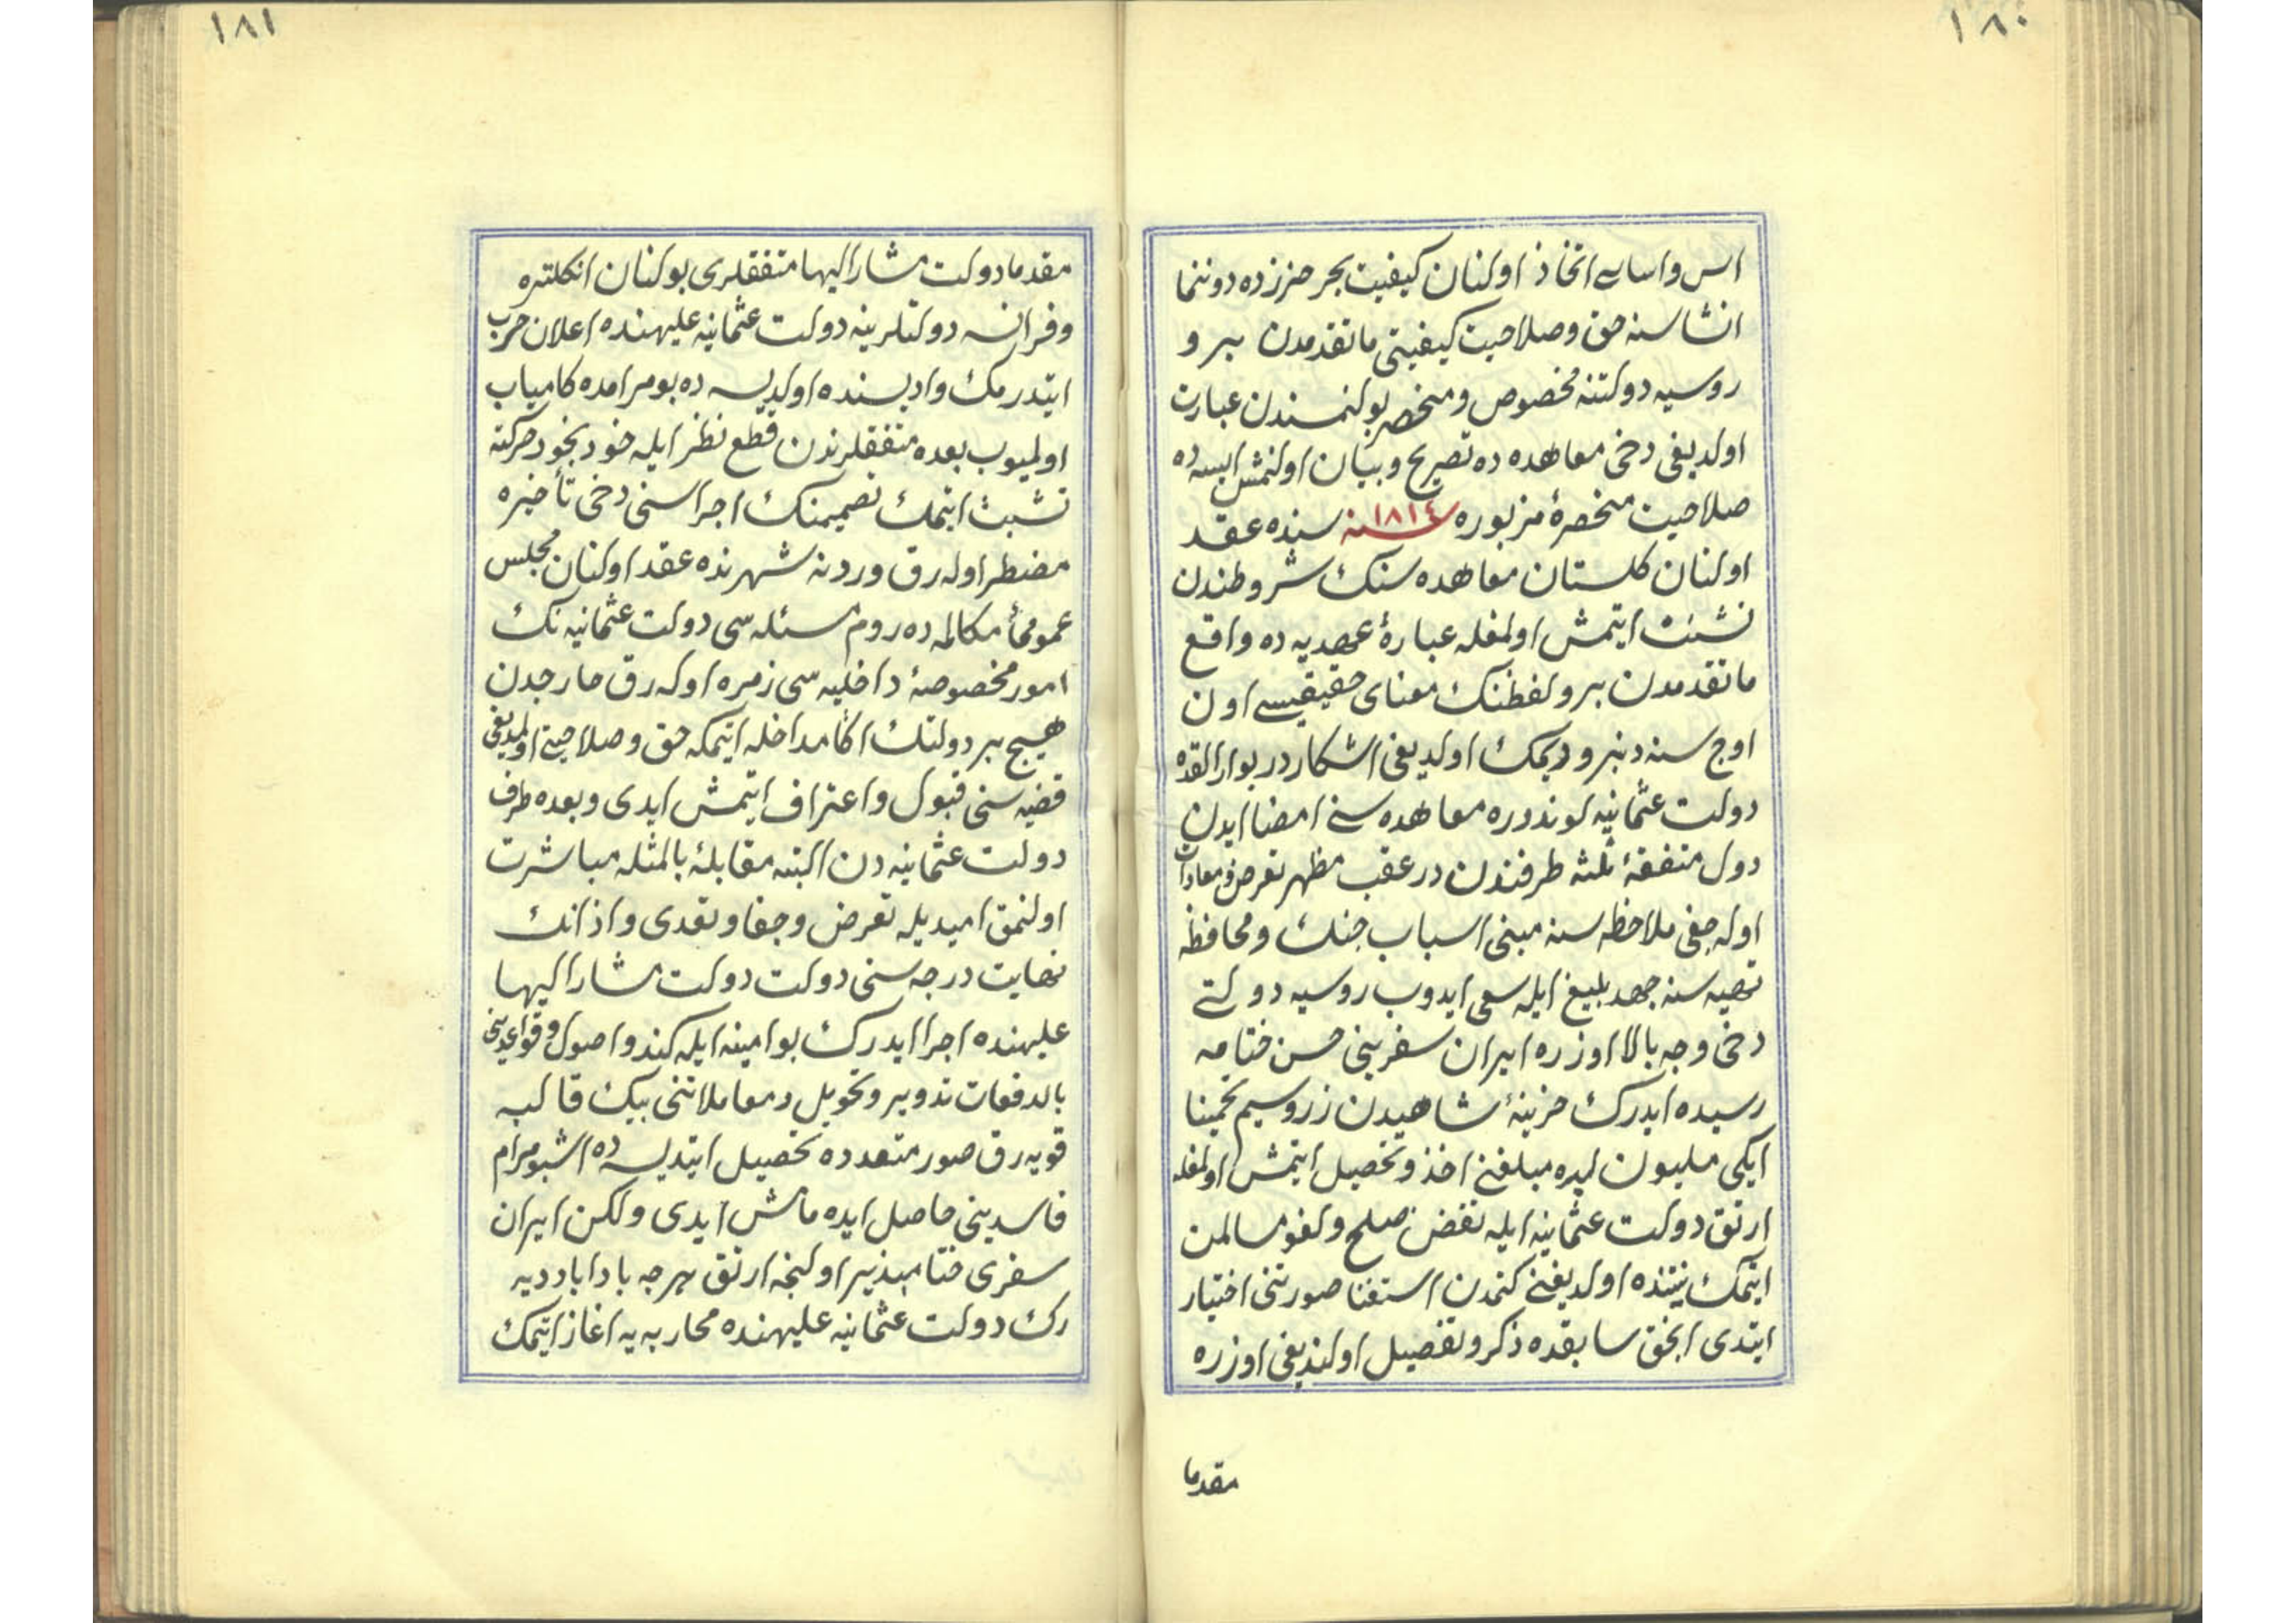 ١٨٠
اس واساسى اتخاذ اولنان كيفيت بحر خزرده دوننما
انشاسنه حق وصلاحيت كيفيتى ماتقدمدن برو
روسيه دولتنه مخصوص ومنحصر بولنمسندن عبارت
اولديغى دخى معاهده ده تصريح وبيان اولنمش ايسه ده
صلاحيت منحصرهٔ مزبوره ١٨١٤ سنه سنده عقد
اولنان كلستان معاهده سنك شروطندن
نشئت ايتمش اولمغله عبارهٔ عهديه ده واقع
ماتقدمدن برو لفظنك معناى حقيقيسى اون
اوج سنه دنبرو ديمك اولديغى اشكاردر بوارالقده
دولت عثمانيه لوندوره معاهده سنى امضا ايدن
دول متفقهٔ ثلثه طرفندن درعقب مظهر تعرض ومعادات
اوله جغى ملاحظه سنه مبنى اسباب جنك ومحافظه
تهيه سنه جهد بليغ ايله سعى ايدوب روسيه دولتى
دخى وجه بالا اوزره ايران سفرينى حسن ختامه
رسيده ايدرك خزينهٔ شاهيدن زر وسيم تخمينا
ايكى مليون ليره مبلغنى اخذ وتحصيل ايتمش اولمغله
ارتق دولت عثمانيه ايله نقض صلح ولغو مسالمت
ايتمك نيتنده اولديغنى كتمدن استغنا صورتنى اختيار
ايتدى انجق سابقده ذكر وتفصيل اولنديغى اوزره
مقدما
١٨١
مقدما دولت مشار اليها متفقلرى بولنان انكلتره
وفرانسه دولتلرينه دولت عثمانيه عليهنده اعلان حرب
ايتدرمك واديسنده اولديسه ده بو مرامده كامياب
اولميوب بعده متفقلرندن قطع نظر ايله خود بخود حركته
تشبث ايتمك تصميمنك اجراسنى دخى تأخيره
مضطر اوله رق ورونه شهرنده عقد اولنان مجلس
عمومئ مكالمه ده روم مسئله سى دولت عثمانيه نك
امور مخصوصهٔ داخليه سى زمره اوله رق خارجدن
هيچ بر دولتك اكا مداخله ايتمكه حق وصلاحيتى اولمديغى
قضيه سنى قبول واعتراف ايتمش ايدى وبعده طرف
دولت عثمانيه دن البته مقابلهٔ بالمثله مباشرت
اولنمق اميديله تعرض وجفا وتعدى واذانك
نهايت درجه سنى دولت دولت مشار اليها
عليهنده اجرا ايدرك بو امينه ايله كندو اصول وقواعدينى
بالدفعات تدوير وتحويل ومعاملاتنى بيك قالبه
قويه رق صور متعدده تحصيل ايتديسه ده اشبو مرام
فاسدينى حاصل ايده مامش ايدى ولكن ايران
سفرى ختامپذير اولنجه ارتق هرچه باداباد ديه
رك دولت عثمانيه عليهنده محاربه يه اغاز ايتمك